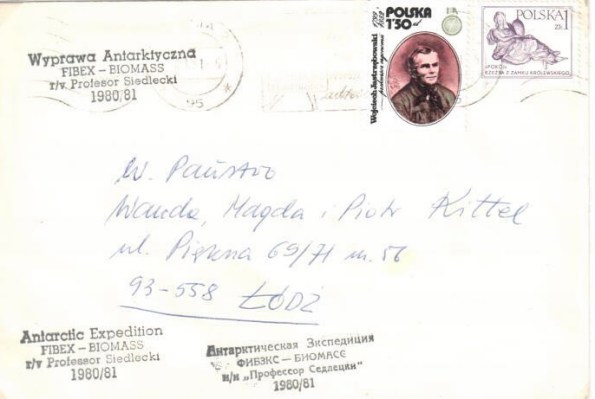 Wyprawa Antarktyczna
FIBEX – BIOMASS
r/v Profesor Siedlecki
1980/81
95
POLSKA
1'50 zł
Wojciech Jastrzębowski
POLSKA 1
ZŁ
„POKÓJ”
RZEŹBA Z ZAMKU KRÓLEWSKIEGO
W. Państwo
Wanda, Magda i Piotr Kittel
ul. Piękna 69/71 m. 56
93-558 ŁÓDŹ
Antarctic Expedition
FIBEX – BIOMASS
r/v Professor Siedlecki
1980/81
Антарктическая Экспедиция
ФИБЭКС – БИОМАСС
н/и „Профессор Седлецки”
1980/81